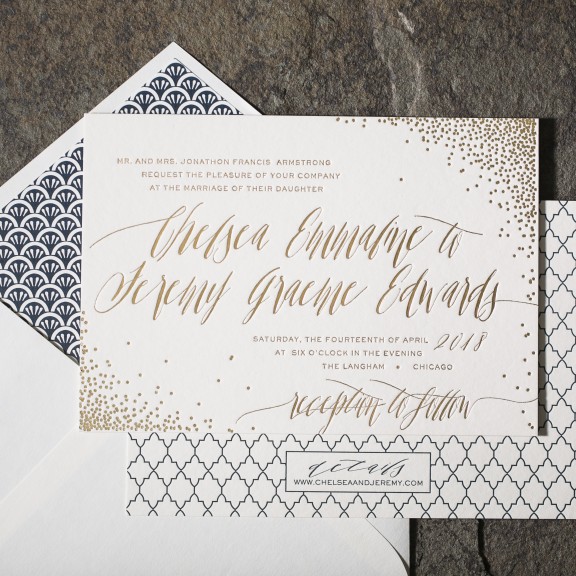 MR. AND MRS. JONATHON FRANCIS ARMSTRONG
REQUEST THE PLEASURE OF YOUR COMPANY
AT THE MARRIAGE OF THEIR DAUGHTER
Chelsea Emmaline to
Jeremy Graeme Edwards
SATURDAY, THE FOURTEENTH OF APRIL 2018
AT SIX O'CLOCK IN THE EVENING
THE LANGHAM • CHICAGO
reception to follow
details
WWW.CHELSEAANDJEREMY.COM